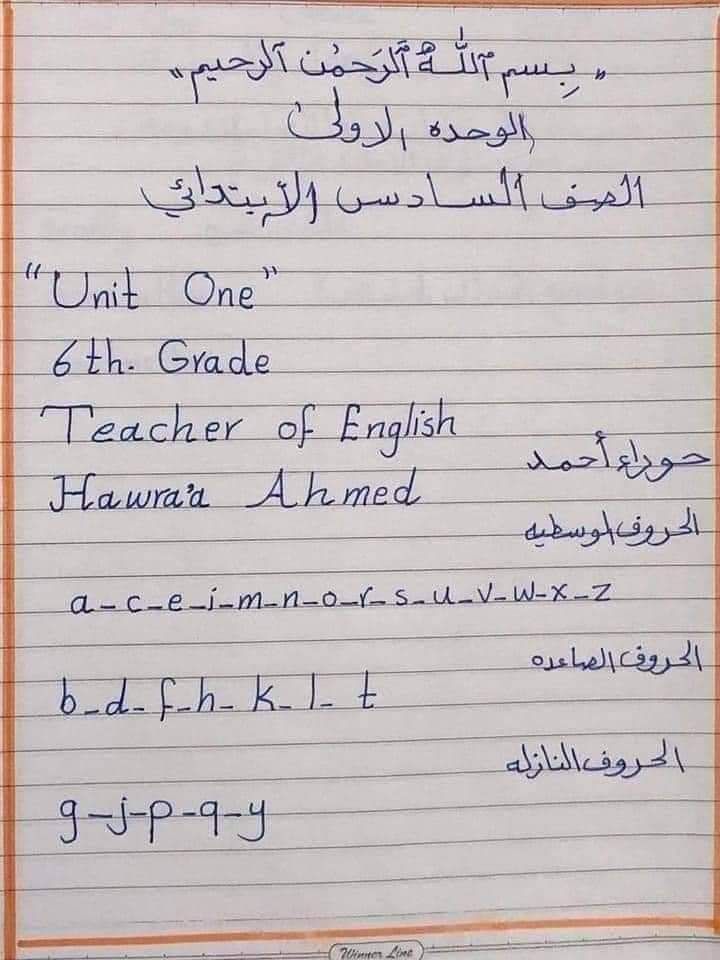 "بِسم ٱللَّهُ ٱلرَحمٰن ٱلرحيم"
الوحده الاولىٰ
الصف السادس الأبتدائي
"Unit One"
6th. Grade
Teacher of English
حوراء أحمد
Hawra'a Ahmed
الحروف الوسطيه
a-c-e-i-m-n-o-r-s-u-v-w-x-z
الحروف الصاعده
b-d-f-h-k-l-t
الحروف النازله
g-j-p-q-y
Winner Line